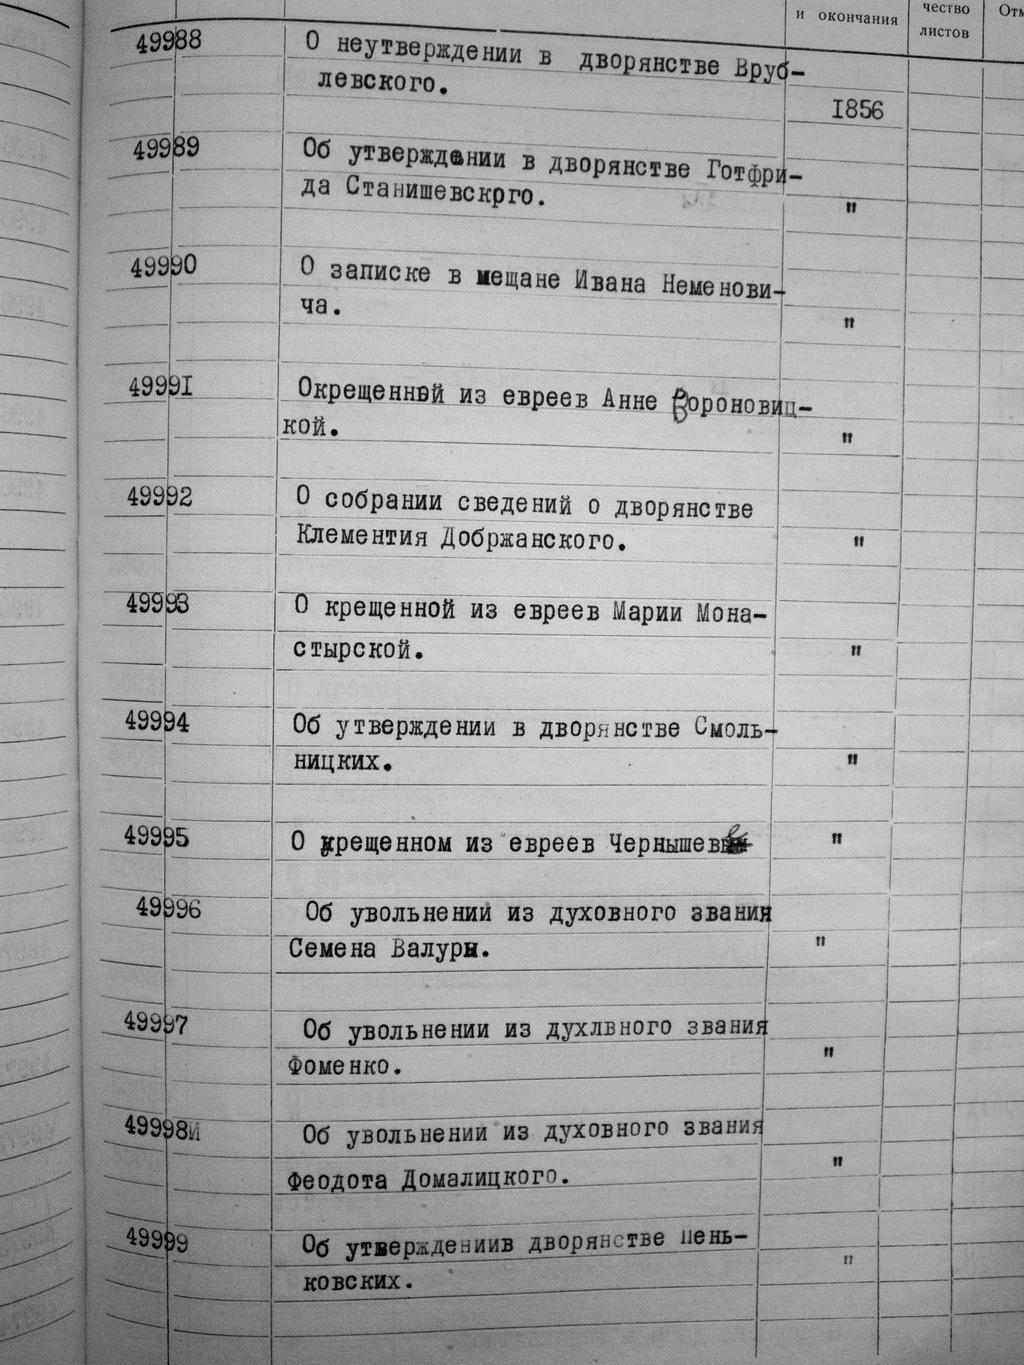 и окончания
чество
листов
49988 О неутверждении в дворянстве Вруб-
левского.
1856
49989 Об утверждении в дворянстве Готфри-
да Станишевского.
"
49990 О записке в мещане Ивана Неменови-
ча.
"
49991 Окрещенной из евреев Анне Вороновиц-
кой.
"
49992 О собрании сведений о дворянстве
Клементия Добржанского.
"
49993 О крещенной из евреев Марии Мона-
стырской.
"
49994 Об утверждении в дворянстве Смоль-
ницких.
"
49995 О крещенном из евреев Чернышеве "
49996 Об увольнении из духовного звания
Семена Валуры.
"
49997 Об увольнении из духлвного звания
Фоменко.
"
49998и Об увольнении из духовного звания
"
Феодота Домалицкого.
49999 Об утверждениив дворянстве Пень-
"
ковских.